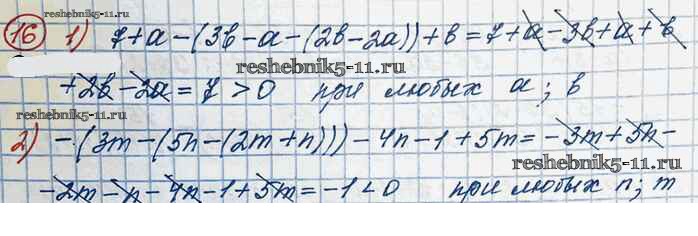 reshebnik5-11.ru
16 1) 7+a-(3b-a-(2b-2a))+b=7+a-3b+a+b
reshebnik5-11.ru
+2b-2a=7>0 при любых a; b
reshebnik5-11.ru
2) -(3m-(5n-(2m+n)))-4n-1+5m=-3m+5n-
reshebnik5-11.ru
reshebnik5-11.ru
-2m-n-4n-1+5m=-1<0 при любых n; m